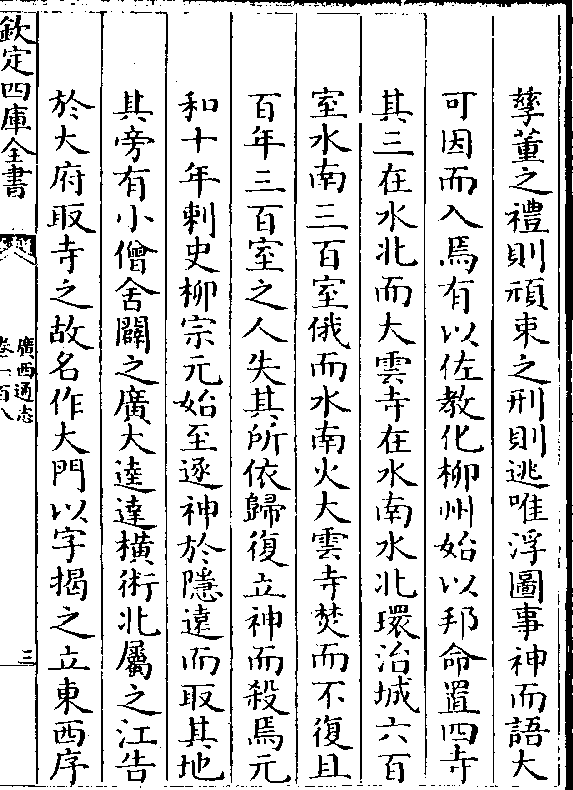 孽董之禮則頑束之刑則逃唯浮圖事神而語大
可因而入焉有以佐教化柳州始以邦命置四寺
其三在水北而大雲寺在水南水北環治城六百
室水南三百室俄而水南火大雲寺焚而不復且
百年三百室之人失其所依歸復立神而殺焉元
和十年刺史柳宗元始至逐神於隱遠而取其地
其旁有小僧舍闢之廣大逵達橫術北屬之江告
於大府取寺之故名作大門以字揭之立東西序
欽定四庫全書
廣西通志
卷一百八
三